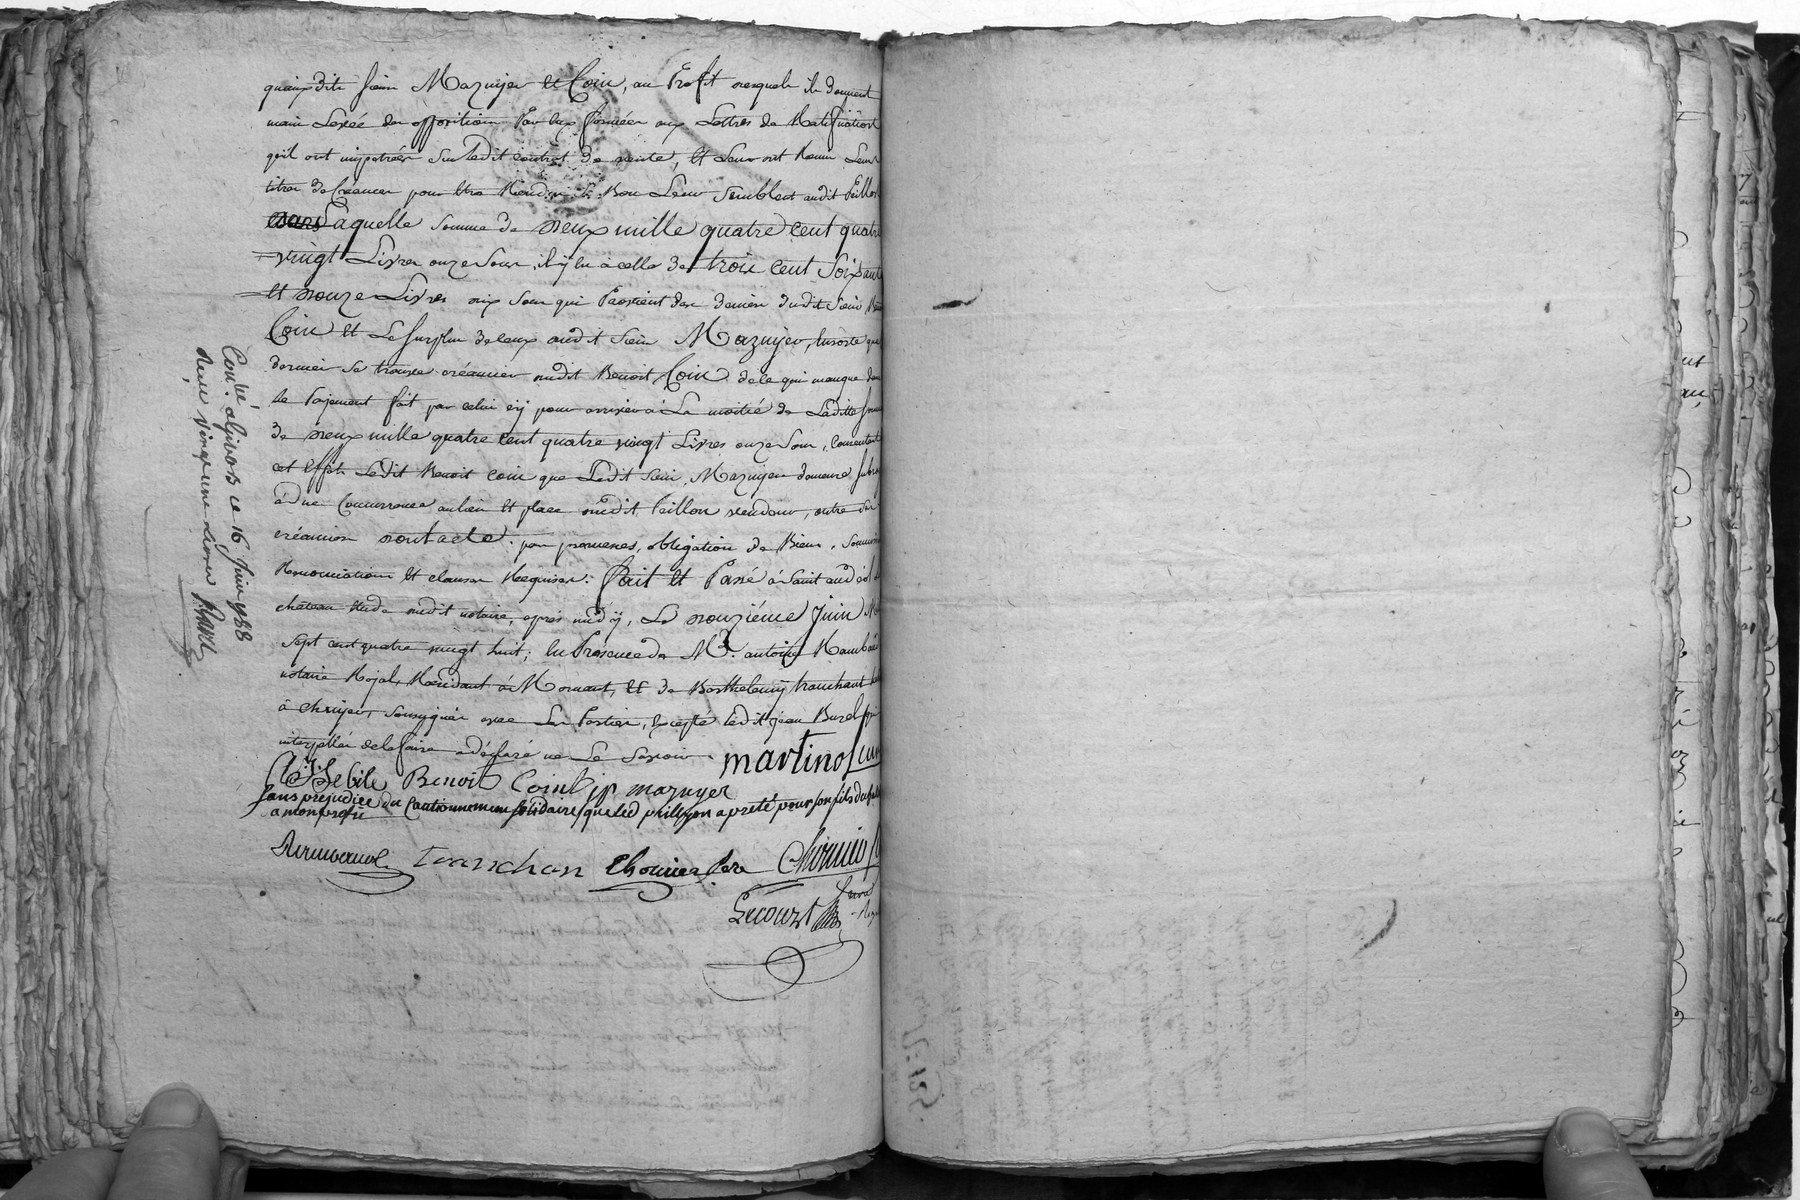 quauxdits sieurs Mazuyer et Coin, au Profit desquels ils donnent
main Levée des oppositions Par Eux formées aux Lettres de Ratification
qu'il ont impétrées sur Ledit contrat de vente, Et Leur ont Remis Leurs
titres de Créances pour Etre Rendus si Bon Leur Semblent audit Peillon
Laquelle Somme de deux mille quatre cent quatre
vingt Livres onze Sous, il y En a celle de trois cent Soixante
Et douze Livres dix Sous qui Provient des deniers dudit Sieur
Coin Et Le Surplus de ceux dudit Sieur Mazuyer, Ensorte que
dernier Se trouve créancier dudit Benoit Coin de ce qui manque dans
Le Payement fait par celui cy pour arriver à La moitié de Laditte
de deux mille quatre cent quatre vingt Livres onze Sous, consentant
cet Effet Ledit Benoit Coin que Ledit Sieur Mazuyer demeure
à due Concurrence au lieu Et place dudit Peillon vendeur, outre
créancier dont acte. par promesses, obligation de Biens,
Renonciations Et clauses Requises: fait Et Passé à Saint andéol
château Etude dudit notaire, après midÿ, Le douziéme Juin
Sept cent quatre vingt huit; En Présence de Me. antoine
notaire Royal, Résidant à Mornant, Et de Barthelemÿ tranchant
à chuyer, Soussignés avec Les Parties, Excepté Ledit Jean Burel
interpellée de le faire a déclaré ne Le Savoir. martino
Benoit Coin mazuyer
sans prejudice du Cautionnement solidaire que led peillon a preté pour son fils
a mon profit
tranchan thonier Pere
Lecourt
Conlé. a Givors ce 16 Juin 1788
Reçu vingt une Livres